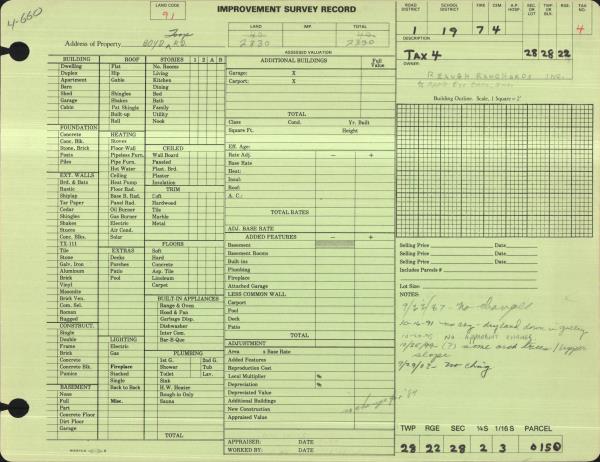 4-660
LAND CODE
91
IMPROVEMENT SURVEY RECORD
LAND IMP. TOTAL
2330 2330
Address of Property BOYD RD.
ASSESSED VALUATION
ROAD DISTRICT SCHOOL DISTRICT FIRE CEM. A.P. HOSP. TWP OR BLK. RGE TAX
1 19 7 4 4
DESCRIPTION
TAX 4 28 28 22
OWNER
REAUGH RANCHARDS INC.
BUILDING ROOF STORIES 1 2 A B
Dwelling Flat No. Rooms
Duplex Hip Living
Apartment Gable Kitchen
Barn Dining
Shed Shingles Bed
Garage Shakes Bath
Cabin Pat Shingle Family
Built-up Utility
Roll Nook
FOUNDATION
Concrete HEATING
Conc. Blk. Stoves
Stone, Brick Floor Wall CEILED
Posts Pipeless Furn. Wall Board
Piles Pipe Furn. Paneled
Hot Water Plast. Brd.
EXT. WALLS Ceiling Plaster
Brd. & Bats Heat Pump Insulation
Rustic Floor Rad. TRIM
Shiplap Base B. Rad. Soft
Tar Paper Panel Rad. Hardwood
Cedar Oil Burner Tile
Shingles Gas Burner Marble
Shakes Electric Metal
Stucco Air Cond.
Conc. Blks. Solar
TX 111 FLOORS
Tile EXTRAS Soft
Stone Decks Hard
Galv. Iron Porches Concrete
Aluminum Patio Asp. Tile
Brick Pool Linoleum
Vinyl Carpet
Masonite
Brick Ven. BUILT-IN APPLIANCES
Com. Sel. Range & Oven
Roman Hood & Fan
Rugged Garbage Disp.
CONSTRUCT. Dishwasher
Single Inter Com.
Double LIGHTING Bar-B-Que
Frame Electric
Brick Gas PLUMBING
Concrete 1st G. 2nd G.
Concrete Blk. Fireplace Shower Tub
Pumice Stacked Toilet Lav.
Single Sink
BASEMENT Back to Back H.W. Heater
None Rough-in Only
Full Misc. Sauna
Part
Concrete Floor
Dirt Floor
Garage
TOTAL
ADDITIONAL BUILDINGS Full Value
Garage: X
Carport: X
Class Cond. Yr. Built
Square Ft. Height
Eff. Age:
Rate Adj. – +
Base Rate
Heat:
Insul:
Roof:
A. C.:
TOTAL RATES
ADJ. BASE RATE
ADDED FEATURES – +
Basement
Basement Rooms
Built-ins
Plumbing
Fireplace
Attached Garage
LESS COMMON WALL
Carport
Pool
Deck
Patio
TOTAL
ADJUSTMENT
Area x Base Rate
Added Features
Reproduction Cost
Local Multiplier %
Depreciation %
Depreciated Value
Additional Buildings
New Construction
Appraised Value
APPRAISER: DATE
WORKED BY DATE
Building Outline. Scale, 1 Square = 2'
Selling Price Date
Selling Price Date
Selling Price Date
Includes Parcels #
Lot Size:
NOTES:
no changes
10-16-91 no chg - dryland down in gulley
NO APPARENT CHANGE
(?) some orch trees / upper slope
no chng
TWP RGE SEC ¼S 1/16 S PARCEL
28 22 28 2 3 0150